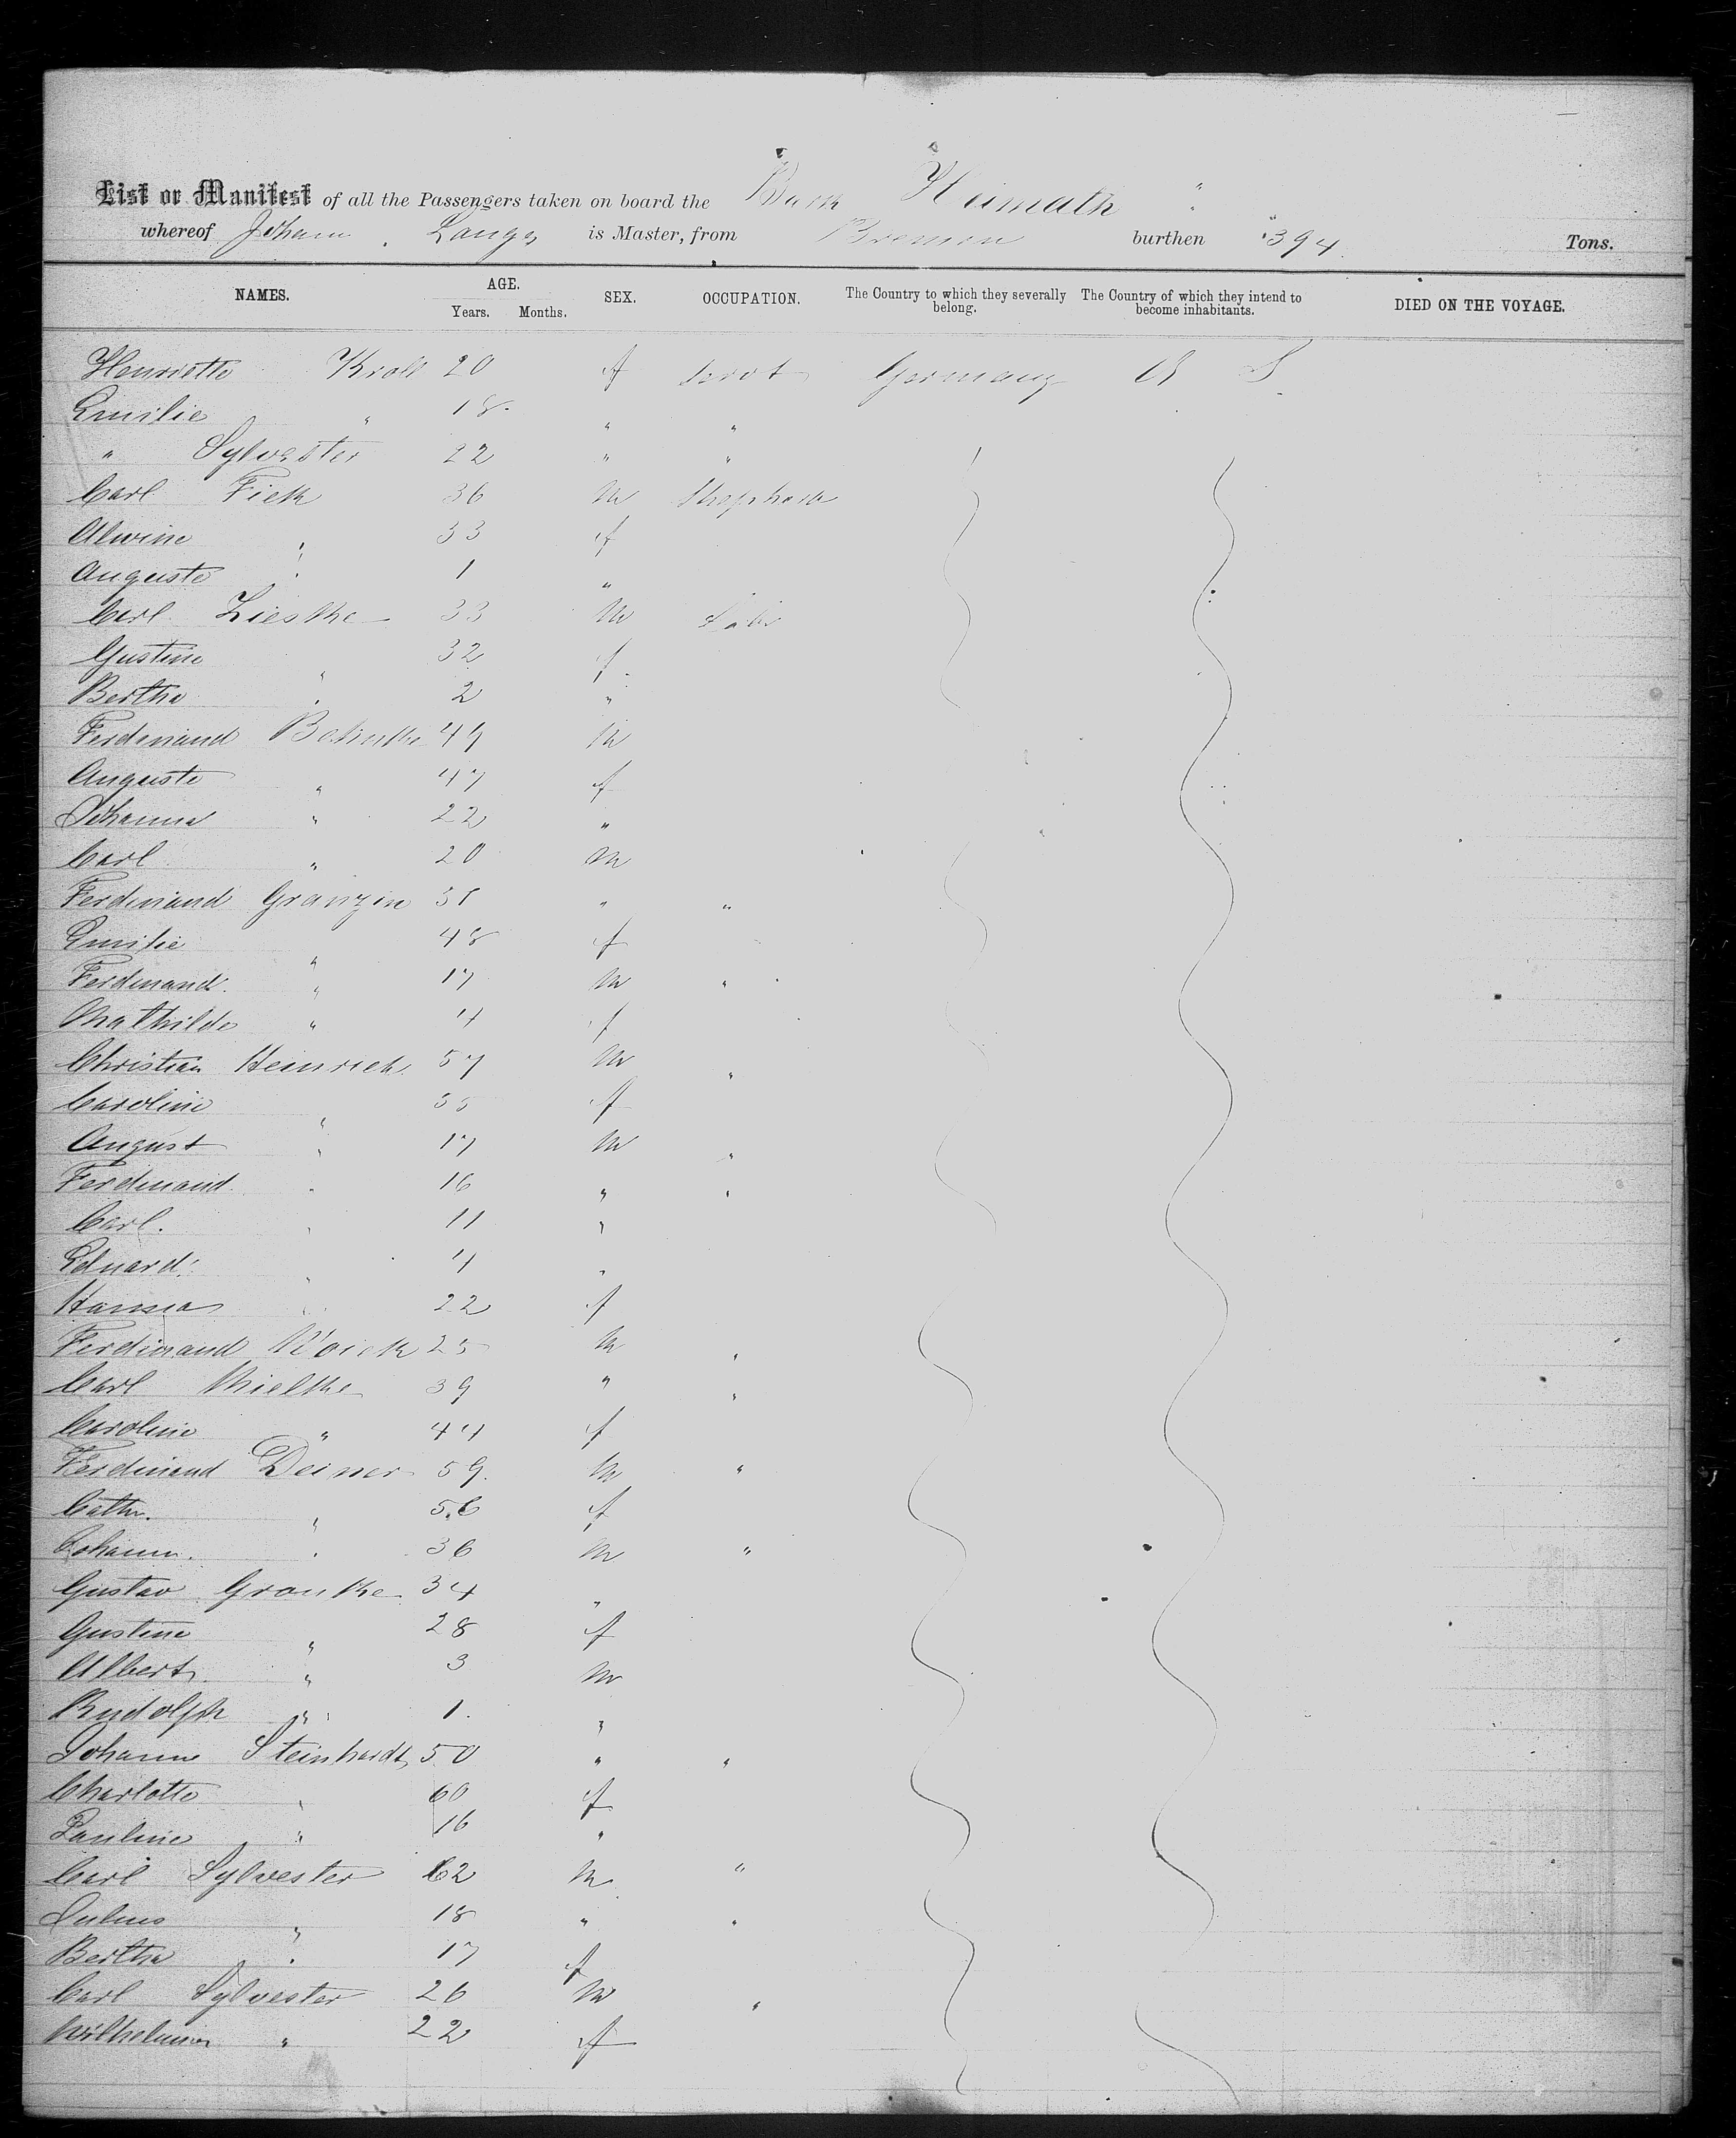 List or Manifest of all the Passengers taken on board the Bark Heimath "
whereof Johann Lange is Master, from Bremen burthen 394 Tons.
NAMES. AGE. SEX. OCCUPATION. The Country to which they severally belong. The Country of which they intend to become inhabitants. DIED ON THE VOYAGE.
Years. Months.
Henriette Kroll 20 f servt Germany U S
Emilie " 18 " "
" Sylvester 22 " "
Carl Fick 36 m
Alwine " 33 f
Auguste " 1 "
Carl Zieske 33 m Labr
Gustine " 32 f
Bertha " 2 "
Ferdinand 49 m
Auguste " 47 f
Johanna " 22 "
Carl " 20 m
Ferdinand Granzin 51 " "
Emilie " 48 f
Ferdinand " 17 m "
Mathilde " 4 f
Christian Heinrich 57 m "
Caroline " 35 f
August " 17 m "
Ferdinand " 16 " "
Carl " 11 "
Eduard " 4 "
Hanna " 22 f
Ferdinand 25 m "
Carl Mielke 39 " "
Caroline " 44 f
Ferdinand Deiner 59 m "
Cath. " 56 f
Johann " 36 m "
Gustav Granke 34 "
Gustine " 28 f
Albert " 3 m
Rudolph " 1 "
Johann Steinhardt 50 " "
Charlotte " 60 f
Pauline " 16 "
Carl Sylvester 62 m "
Julius " 18 " "
Bertha " 17 f
Carl Sylvester 26 m "
Wilhelmine " 22 f